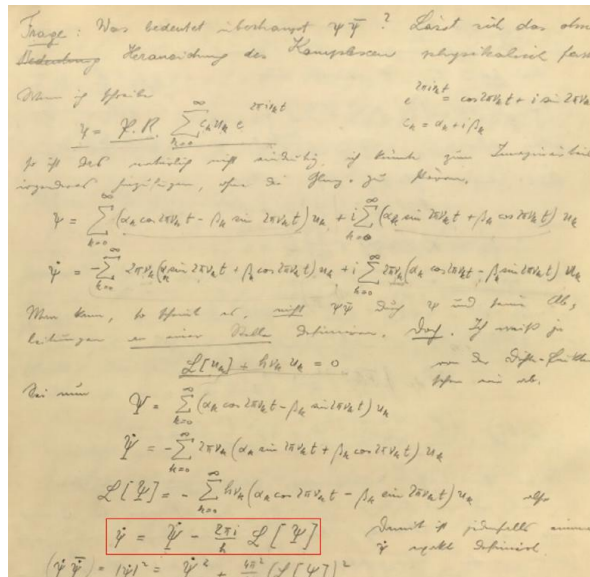 Frage: Was bedeutet überhaupt ψψ̄? Lässt sich das ohne
Heranziehung des Komplexen physikalisch
Wenn ich schreibe
e^{2πiν_k t} = cos 2πν_k t + i sin 2πν_k t
ψ = P.R. Σ_{k=0}^{∞} c_k u_k e^{2πiν_k t}
c_k = α_k + iβ_k
so ist das natürlich nicht eindeutig, ich könnte zum Imaginärteil
irgendwas hinzufügen, ohne die zu stören.
ψ = Σ_{k=0}^{∞} (α_k cos 2πν_k t - β_k sin 2πν_k t) u_k + i Σ_{k=0}^{∞} (α_k sin 2πν_k t + β_k cos 2πν_k t) u_k
ψ̇ = -Σ_{k=0}^{∞} 2πν_k (α_k sin 2πν_k t + β_k cos 2πν_k t) u_k + i Σ_{k=0}^{∞} 2πν_k (α_k cos 2πν_k t - β_k sin 2πν_k t) u_k
Man kann, so scheint es, nicht ψψ̄ durch ψ und seine Ab-
leitungen an einer Stelle definieren. Doch. Ich weiß ja
L[u_k] + hν_k u_k = 0
von der
Sei nun
Ψ = Σ_{k=0}^{∞} (α_k cos 2πν_k t - β_k sin 2πν_k t) u_k
Ψ̇ = -Σ_{k=0}^{∞} 2πν_k (α_k sin 2πν_k t + β_k cos 2πν_k t) u_k
L[Ψ] = - Σ_{k=0}^{∞} hν_k (α_k cos 2πν_k t - β_k sin 2πν_k t) u_k also
ψ̇ = Ψ̇ - 2πi/h L[Ψ]
Damit ist jedenfalls
ψ̇ exakt definiert.
(ψ̇ ψ̇̄) = |ψ̇|² = Ψ̇² + 4π²/h² (L[Ψ])²